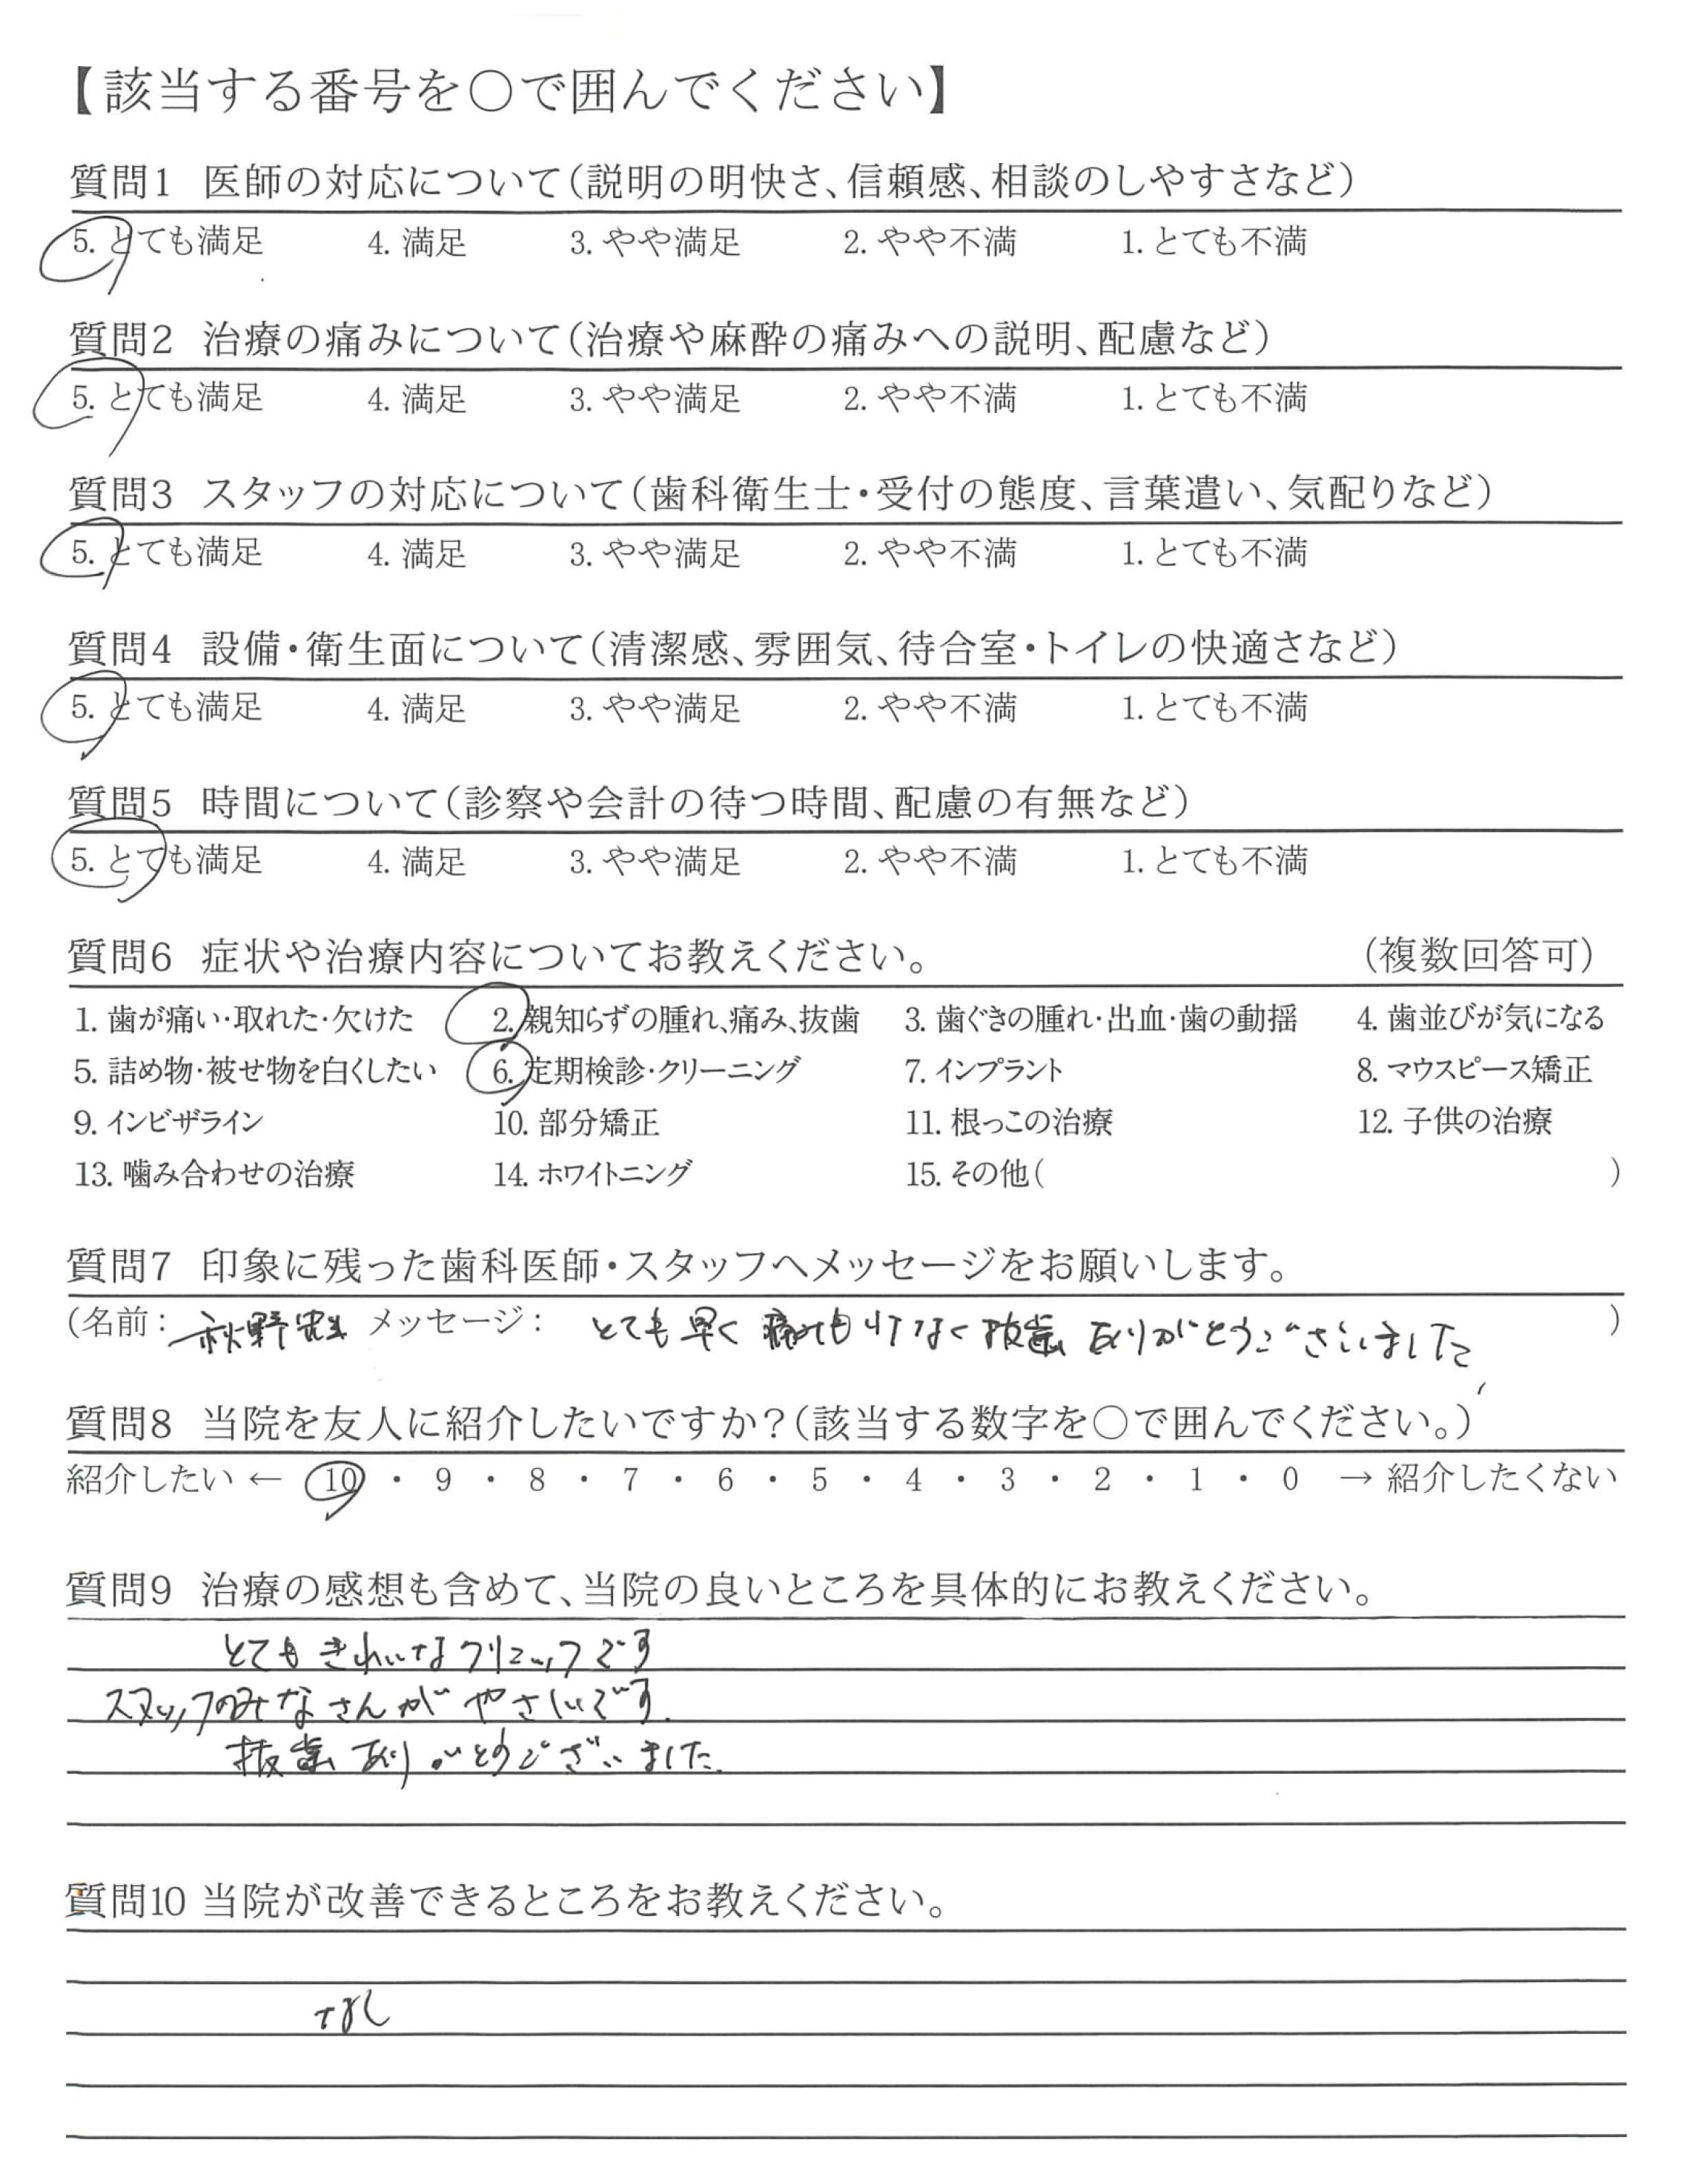 【該当する番号を○で囲んでください】
質問1 医師の対応について(説明の明快さ、信頼感、相談のしやすさなど)
5. とても満足 4. 満足 3. やや満足 2. やや不満 1. とても不満
質問2 治療の痛みについて(治療や麻酔の痛みへの説明、配慮など)
5. とても満足 4. 満足 3. やや満足 2. やや不満 1. とても不満
質問3 スタッフの対応について(歯科衛生士・受付の態度、言葉遣い、気配りなど)
5. とても満足 4. 満足 3. やや満足 2. やや不満 1. とても不満
質問4 設備・衛生面について(清潔感、雰囲気、待合室・トイレの快適さなど)
5. とても満足 4. 満足 3. やや満足 2. やや不満 1. とても不満
質問5 時間について(診察や会計の待つ時間、配慮の有無など)
5. とても満足 4. 満足 3. やや満足 2. やや不満 1. とても不満
質問6 症状や治療内容についてお教えください。 (複数回答可)
1. 歯が痛い・取れた・欠けた 2. 親知らずの腫れ、痛み、抜歯 3. 歯ぐきの腫れ・出血・歯の動揺 4. 歯並びが気になる
5. 詰め物・被せ物を白くしたい 6. 定期検診・クリーニング 7. インプラント 8. マウスピース矯正
9. インビザライン 10. 部分矯正 11. 根っこの治療 12. 子供の治療
13. 噛み合わせの治療 14. ホワイトニング 15. その他( )
質問7 印象に残った歯科医師・スタッフへメッセージをお願いします。
(名前: 秋野 メッセージ: とても早く 痛みも なく 抜歯 ありがとうございました )
質問8 当院を友人に紹介したいですか?(該当する数字を○で囲んでください。)
紹介したい ← 10 ・ 9 ・ 8 ・ 7 ・ 6 ・ 5 ・ 4 ・ 3 ・ 2 ・ 1 ・ 0 → 紹介したくない
質問9 治療の感想も含めて、当院の良いところを具体的にお教えください。
とても きれいな クリニックです
スタッフのみなさんが やさしいです.
抜歯 ありがとうございました.
質問10 当院が改善できるところをお教えください。
なし